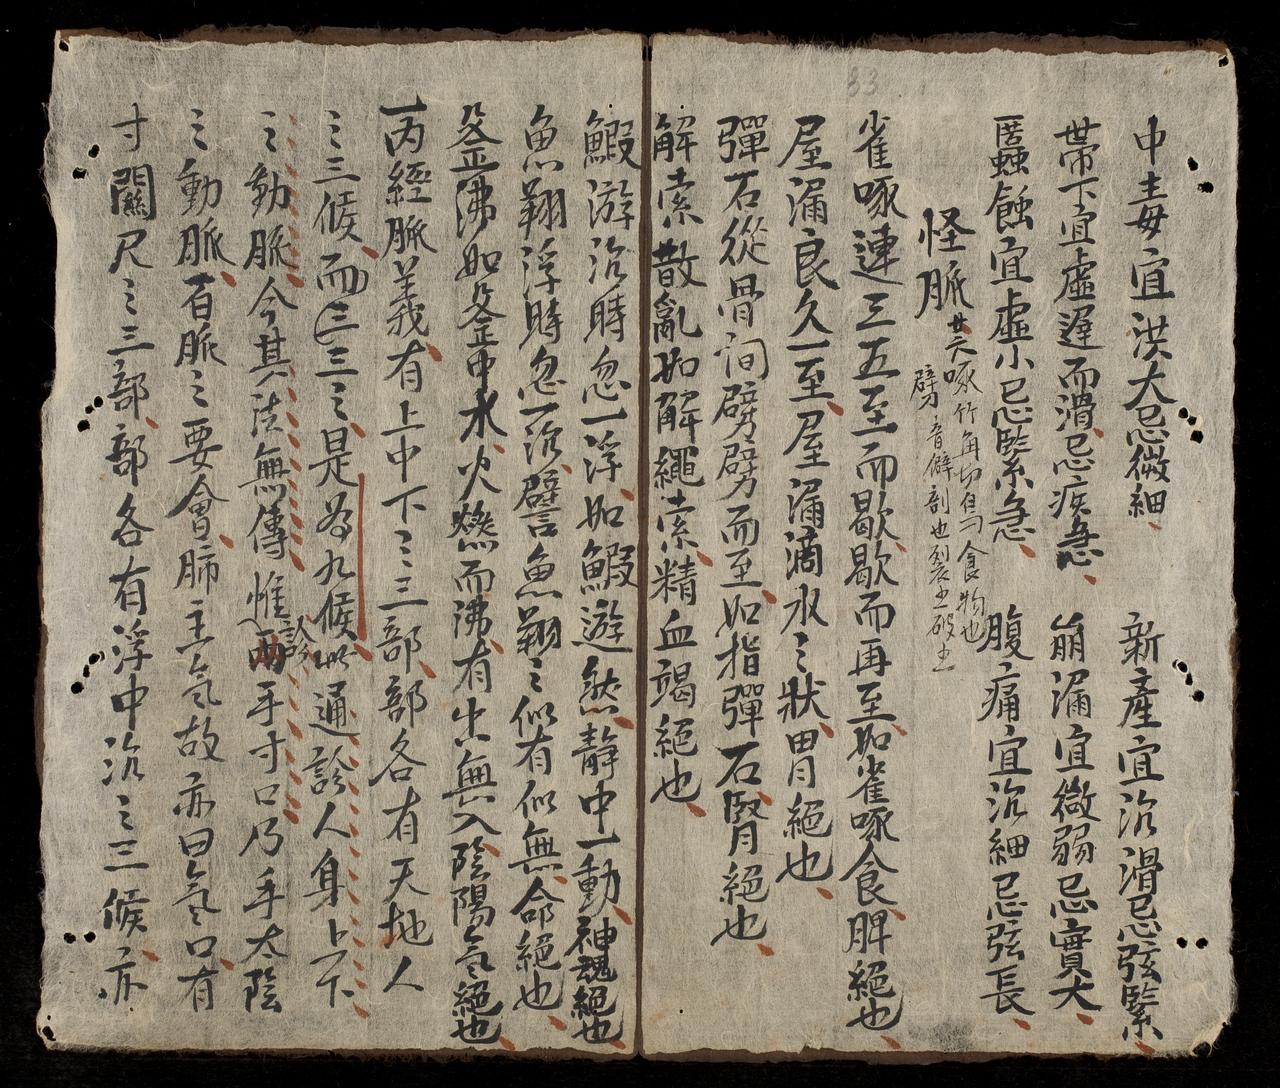 33
中毒宜洪大忌微細 新產宜沉滑忌弦緊
帶下宜虛遲而滑忌疾急 崩漏宜微弱忌實大
匿蟲蝕宜虛小忌緊急 腹痛宜沉細忌弦長
怪脈
啄竹角切鳥食物也
劈音僻剖也裂也破也
雀啄連三五至而歇歇而再至如雀啄食脾絕也
屋漏良久一至屋漏滴水之狀胃絕也
彈石從骨間劈劈而至如指彈石腎絕也
解索散亂如解繩索精血竭絕也
鰕游沉時忽一浮如鰕遊然靜中一動神魂絕也
魚翔浮時忽一沉譬魚翔之似有似無命絕也
釜沸如釜中水火燃而沸有出無入陰陽氣絕也
一丙經脈義有上中下之三部部各有天地人
之三候而三三之是為九候以通診人身上下
之動脈今其法無傳惟診兩手寸口乃手太陰
之動脈百脈之要會肺主氣故亦曰氣口有
寸關尺之三部部各有浮中沉之三候亦